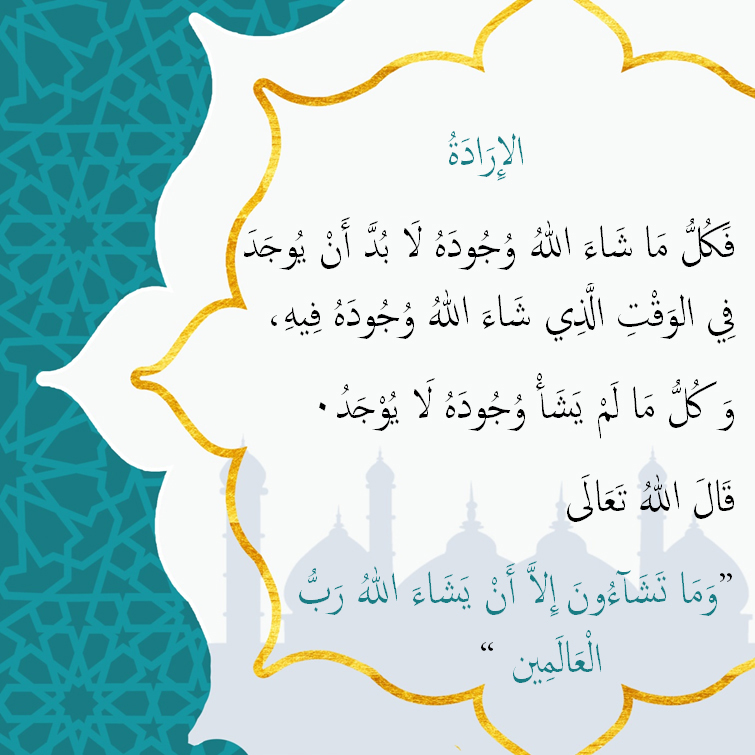 الإِرَادَةُ
فَكُلُّ مَا شَاءَ اللهُ وُجُودَهُ لَا بُدَّ أَنْ يُوجَدَ
فِي الوَقْتِ الَّذِي شَاءَ اللهُ وُجُودَهُ فِيهِ،
وَكُلُّ مَا لَمْ يَشَأْ وُجُودَهُ لَا يُوْجَدُ.
قَالَ اللهُ تَعَالَى
”وَمَا تَشَآءُونَ إِلاَّ أَنْ يَشَاءَ اللهُ رَبُّ
الْعَالَمِين “